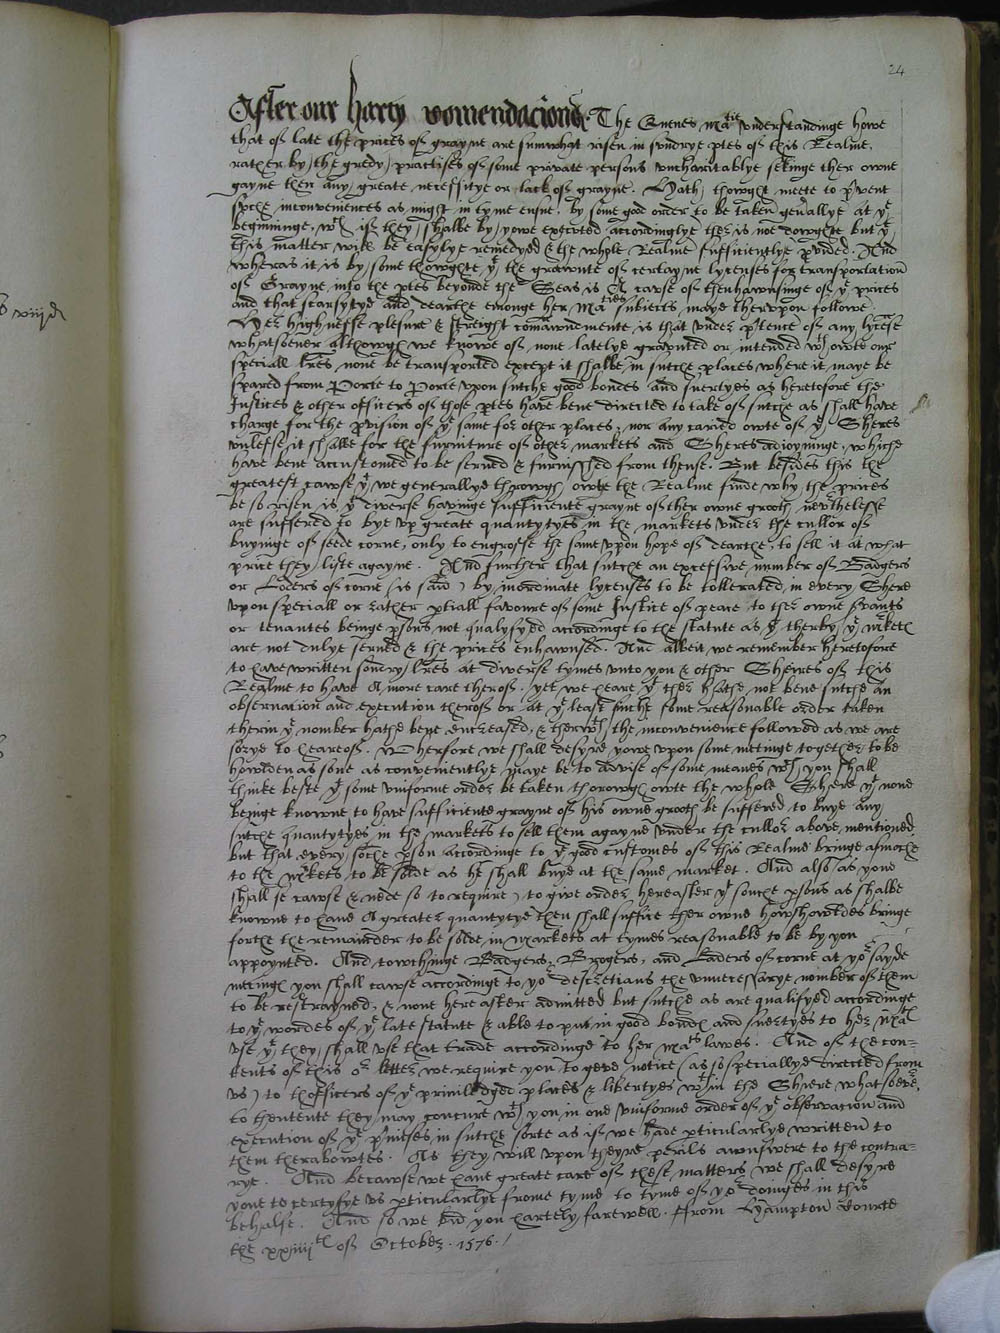 24
After our harty comendacions. The Quenes Matie understandinge howe
that of late the prices of grayne are sumwhat risen in sundrye ptes of this Realme,
rather by the gredy practises of some private persons uncharitablye sekinge ther owne
gayne then any great necessitye or lack of grayne. Hath thowght meete to pvent
suche inconveniences as might in tyme ensue, by some good order to be taken gen'allye at ye
beginninge, wch if they shalbe by yowe executed accordinglye ther is not dowghte but yt
this matter will be easylye remedyed & the whole Realme sufficientlye pvided. And
wheras it is by some thowghte yt the graunte of certayne lycenses for transportation
of Grayne into the ptes beyonde the Seas is A cawse of thenhawnsinge of ye prices
and that scarsytye and dearthe emonge her Maties subiects maye therupon followe
Her highnesse plesure & streight comawndmente is that under ptence of any lycese
whatsoever althowgh we knowe of none latelye graunted or intended wthowte our
speciall lres none be transported except it shalbe in sutche places where it maye be
spared from Porte to Porte upon sutche good bondes and suertyes as heretofore the
Justices & other officers of those ptes have bene directed to take of sutche as shall have
charge for the pvision of ye same for other places, nor any caried owte of yt Sheres
unlesse it shalbe for the furniture of other markets and Sheres adioyninge, which
have bene accustomed to be served & furnisshed from thense. But besides this the
greatest cawse yt we generallye throwgh owte the Realme finde why the prices
be so risen is yt diverse havinge sufficiente grayne of ther owne groth nev'thelesse
are suffered to bye up greate quantytyes in the markets under the cullor of
buyinge of seede corne, only to engrosse the same upon hope of dearthe, to sell it at what
price they liste agayne. And further that sutche an excessive number of Badgers
or Loders of corne (is said) by inordinate lycenses to be tollerated in every Shere
upon speciall or rather pciall favoure of some Justice of peace to ther owne svants
or tenantes beinge psons not qualyfyed accordinge to the statute as yt therby ye mrkets
are not dulye served & the prices enhawnsed. And albeit we remember heretofore
to have written sondry lres at diverse tymes unto you & other Sheires of this
Realme to have A more care therof, yet we heare yt ther hathe not bene sutche an
observation and execution therof or at ye least suche some reasonable order taken
therin yt nomber hathe bene encreased, & therwth the inconvenience followed as we are
sorye to heare of. Wherfore we shall desyre yowe upon some metinge together to be
howlden as sone as convenientlye maye be to advise of some meanes wch you shall
thinke beste yt some uniforme order be taken thorowgh owte the whole Shere yt none
beinge knowne to have sufficiente grayne of his owne groth be suffered to buye any
sutche quantytyes in the markets to sell them agayne under the cullor above mentioned
but that every suche pson accordinge to ye good customes of this Realme bringe asmoche
to the mrkets to be solde as he shall buye at the same market. And also as youe
shall se cawse (& nede so to require) to give order hereafter yt souche psons as shalbe
knowne to have A greater quantytye then shall suffice ther owne howshowldes bringe
forthe the remainder to be solde in markets at tymes reasonable to be by you
appoynted. And towchinge Badgers, Brogers, and Laders of corne at yor sayde
metinge you shall cawse accordinge to yor descretions the unnecessarye nomber of them
to be restrayned, & none here after admitted but sutche as are qualifyed accordinge
to ye wordes of ye late statute & able to put in good bondes and suertyes to her Matis
use yt they shall use that trade accordinge to her Mats lawes. And of the con-
tents of this or letter we require you to geve notice (as so speciallye directed from
us) to thofficers of ye priviledged places & libertyes wthin the Shiere whatsoever,
to thentente they may concure wth you in one uniforme order of ye observacion and
execution of ye pmisses in sutche sorte as if we hade pticularlye written to
them therabowtes. As they will upon theyre perils awnswere to the contra-
rye. And becawse we have greate care of these matters we shall desyre
youe to certyfye us pticularlye frome tyme to tyme of yor doinges in this
behalfe. And so we bid you hartely farewell. From Hampton Courte
the xxiiiith of October. 1576./